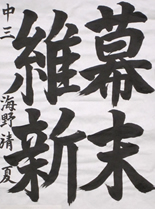 幕末
維新
中三 海野靖夏